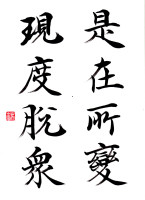 是在所變
現度脫衆